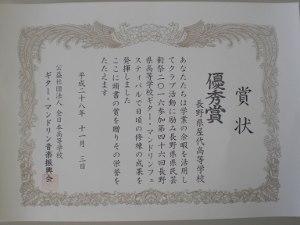 賞状
優秀賞
長野県屋代高等学校
あなたたちは学業の余暇を活用し
てクラブ活動に励み長野県県民芸
術祭二〇一六参加第四十六回長野
県高等学校ギター・マンドリンフェ
スティバルで日頃の修練の成果を
発揮しました
ここに頭書の賞を贈りその栄誉を
たたえます
平成二十八年 十一月 三日
公益社団法人 全日本高等学校
ギター・マンドリン音楽振興会